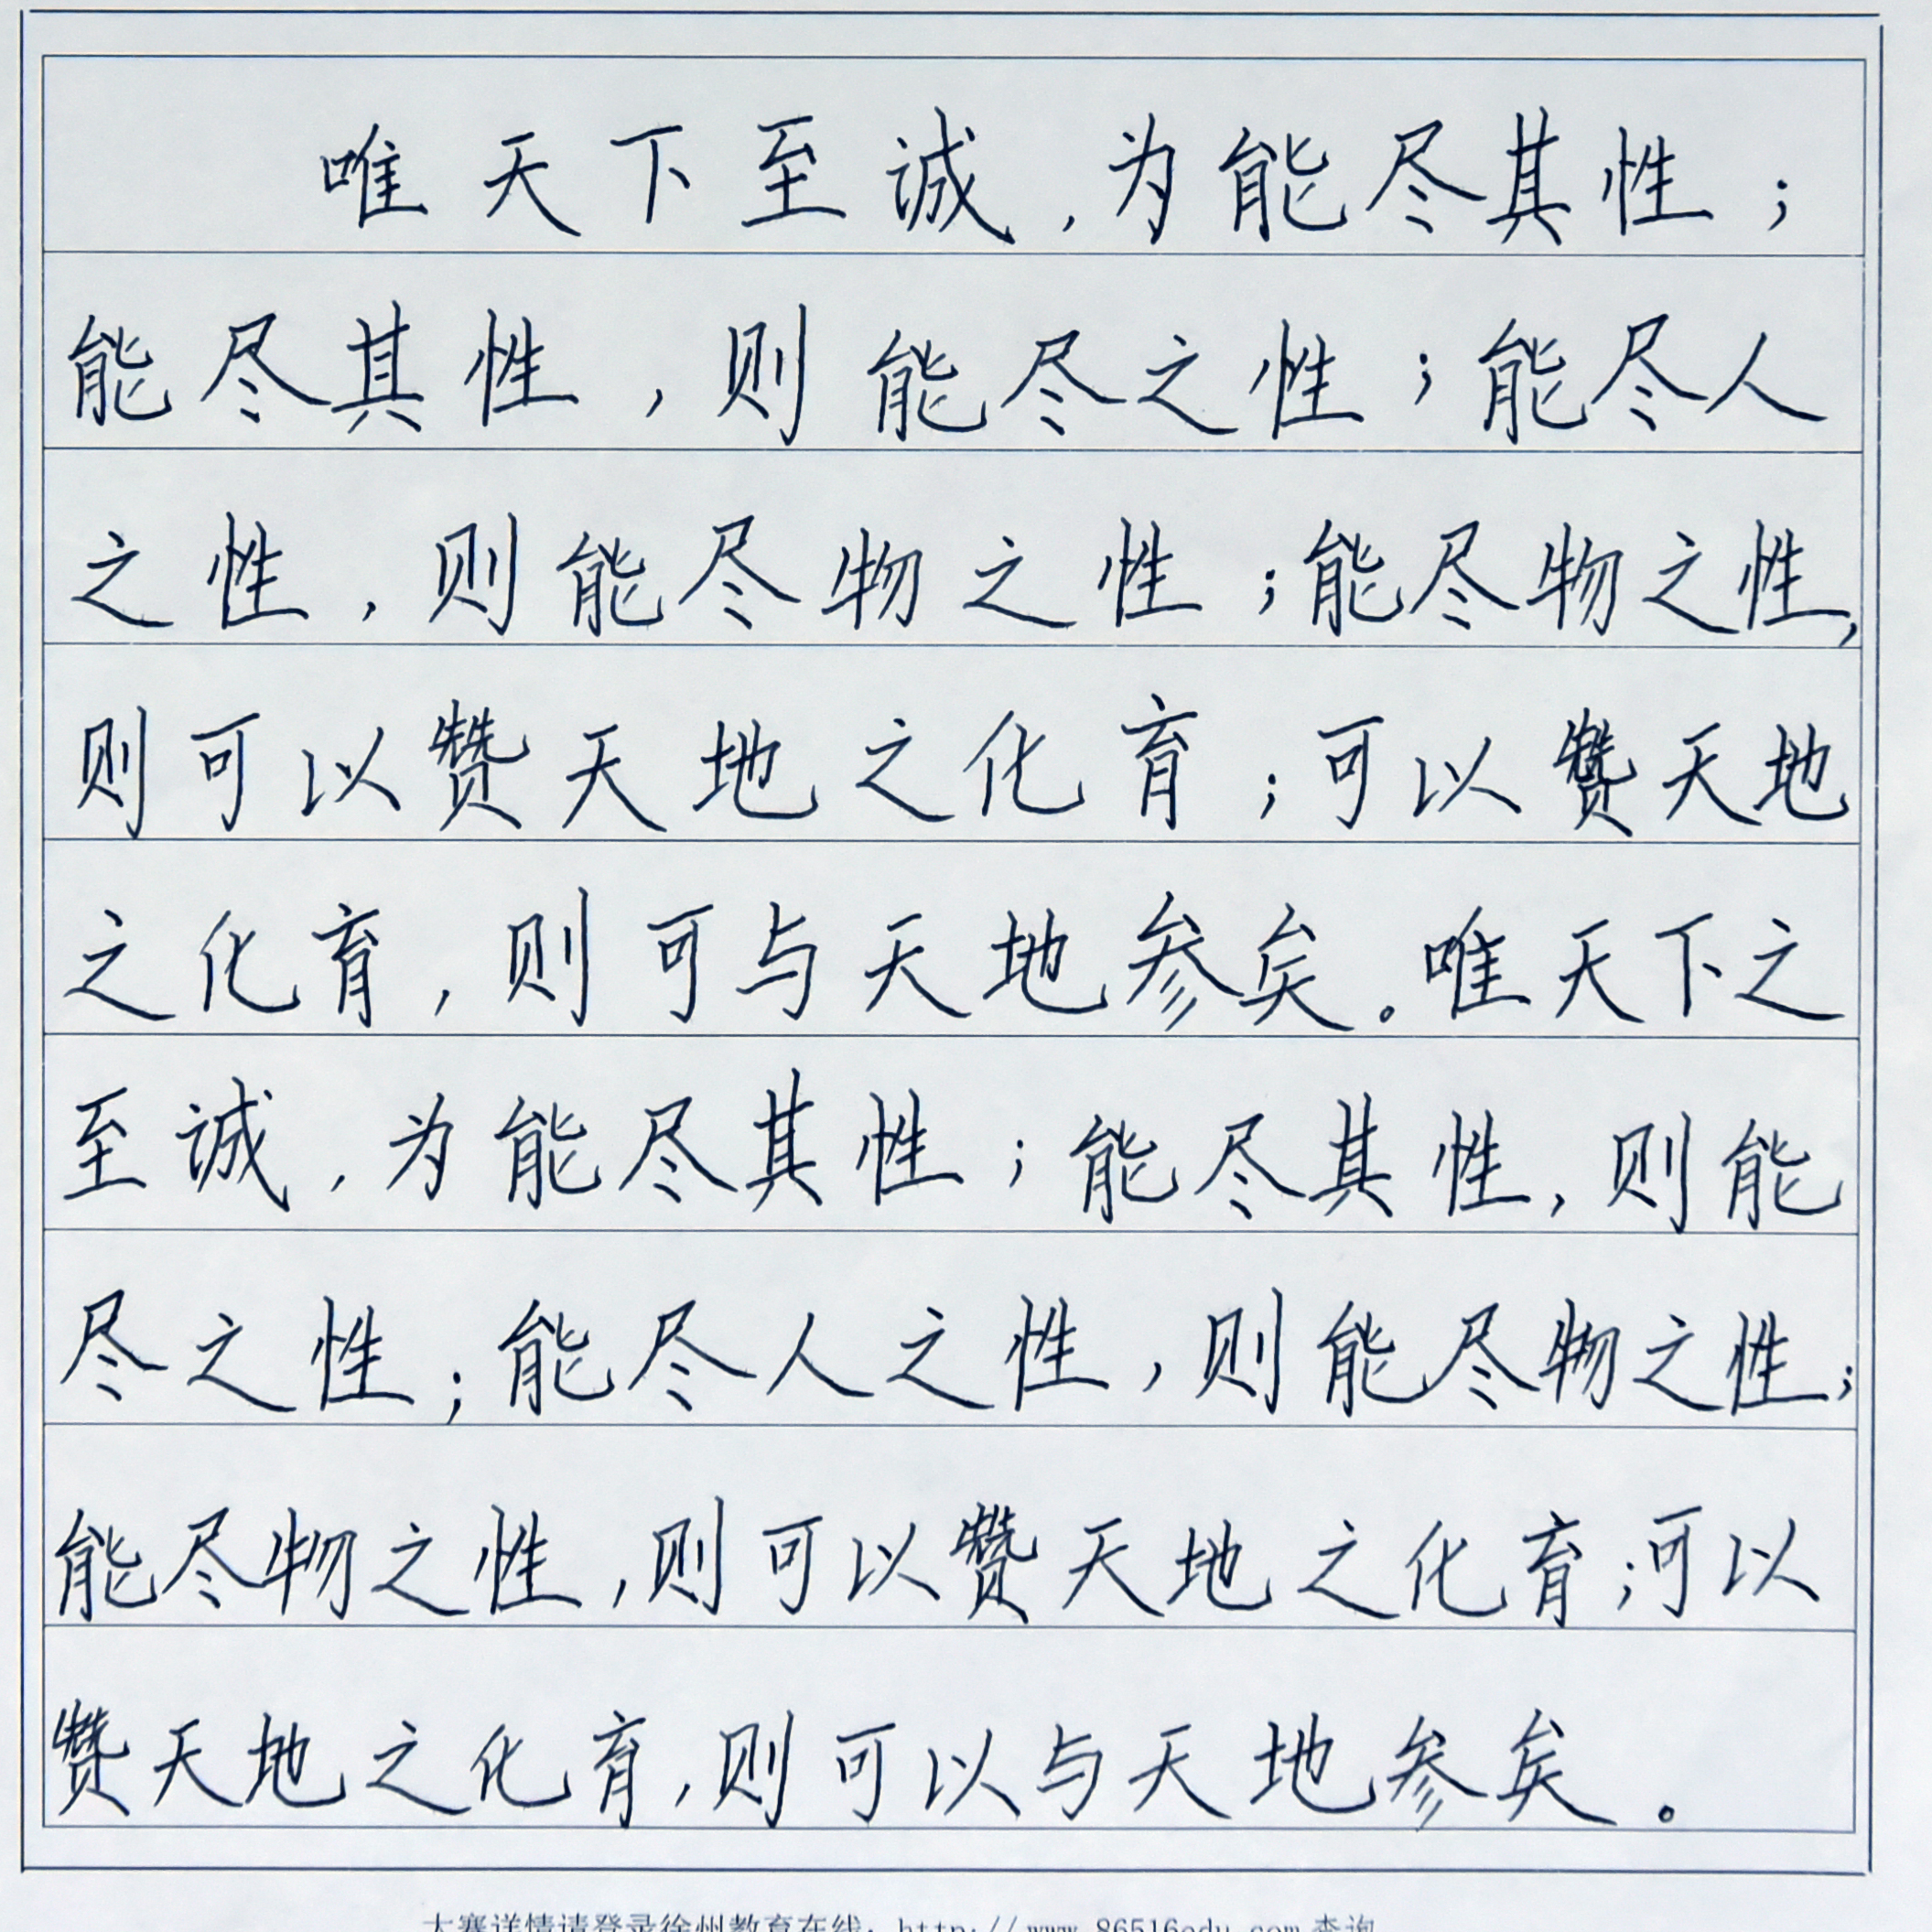 唯天下至诚,为能尽其性;
能尽其性,则能尽之性;能尽人
之性,则能尽物之性;能尽物之性,
则可以赞天地之化育;可以赞天地
之化育,则可与天地参矣。唯天下之
至诚,为能尽其性;能尽其性,则能
尽之性;能尽人之性,则能尽物之性;
能尽物之性,则可以赞天地之化育;可以
赞天地之化育,则可以与天地参矣。
大赛详情请登录徐州教育在线:http://www.86516edu.com查询